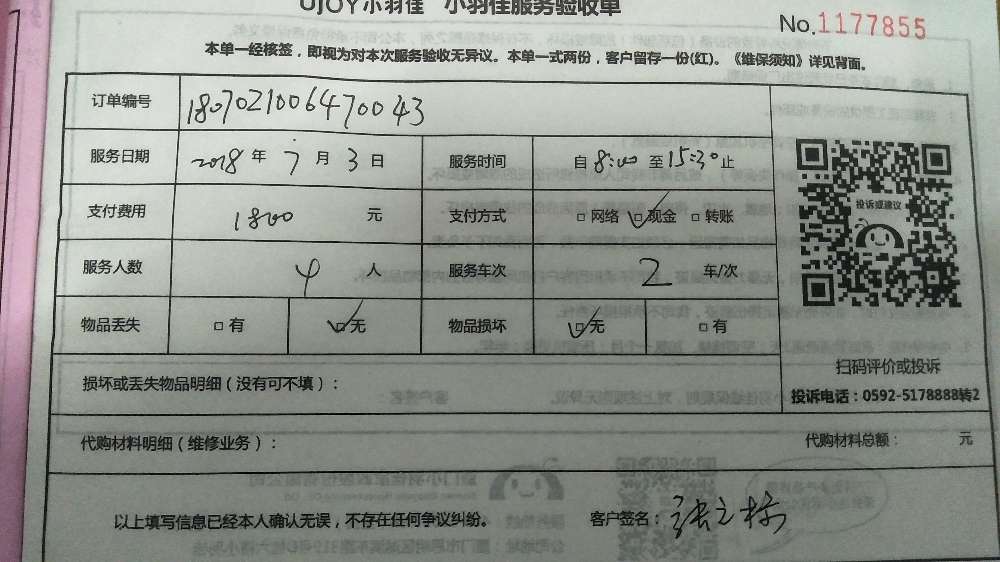 UJOY小羽佳 小羽佳服务验收单
No.1177855
本单一经核签，即视为对本次服务验收无异议。本单一式两份，客户留存一份(红)。《维保须知》详见背面。
订单编号 180702100647​0043
服务日期 2018 年 7 月 3 日 服务时间 自 8:00 至 15:30 止
支付费用 1800 元 支付方式 □ 网络 ☑ 现金 □ 转账
服务人数 4 人 服务车次 2 车/次
物品丢失 □ 有 ☑ 无 物品损坏 ☑ 无 □ 有
投诉或建议
扫码评价或投诉
投诉电话：0592-5178888转2
损坏或丢失物品明细（没有可不填）：
代购材料明细（维修业务）： 代购材料总额： 元
以上填写信息已经本人确认无误，不存在任何争议纠纷。 客户签名：